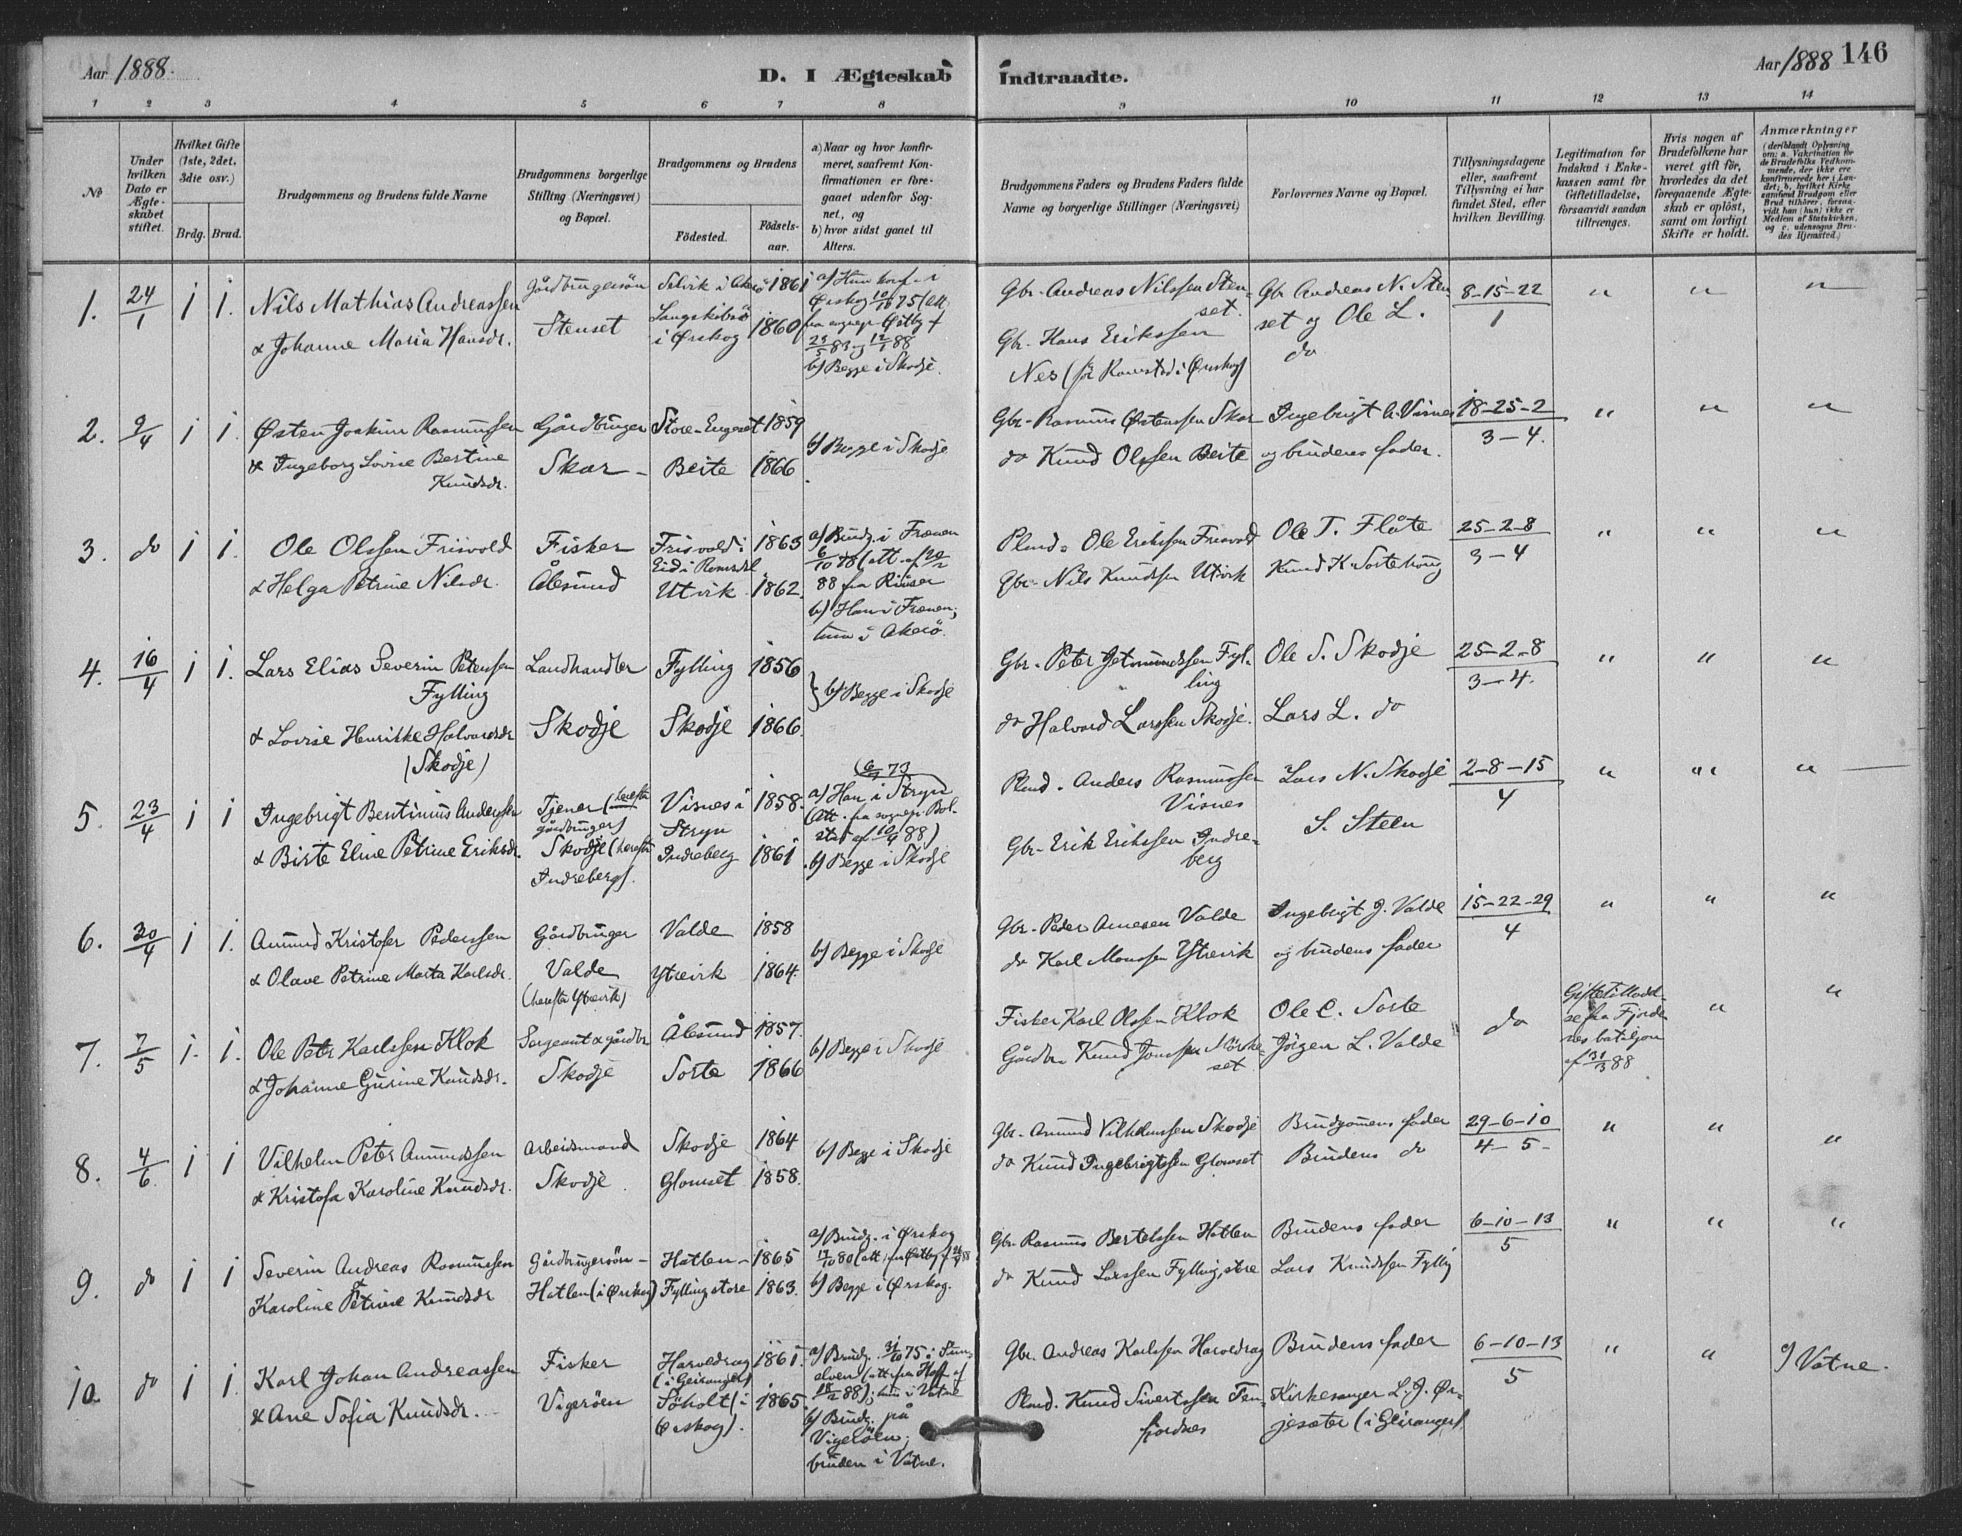 Aar 1888.
D. I Ægteskab Indtraadte.
Aar 1888 146
1 2 3 4 5 6 7 8 9 10 11 12 13 14
No
Under hvilken Dato er Ægteskabet stiftet.
Hvilket Gifte (1ste, 2det, 3die osv.)
Brdg. Brud.
Brudgommens og Brudens fulde Navne
Brudgommens borgerlige Stilling (Næringsvei) og Bopæl.
Brudgommens og Brudens
Fødested.
Fødselsaar.
a) Naar og hvor konfirmeret, saafremt Konfirmationen er foregaaet udenfor Sognet, og
b) hvor sidst gaaet til Alters.
Brudgommens Faders og Brudens Faders fulde Navne og borgerlige Stillinger (Næringsvei)
Forlovernes Navne og Bopæl.
Tillysningsdagene eller, saafremt Tillysning ei har fundet Sted, efter hvilken Bevilling.
Legitimation for Indskud i Enkekassen samt for Giftetilladelse, forsaavidt saadan tiltrænges.
Hvis nogen af Brudefolkene har været gift før, hvorledes da det foregaaende Ægteskab er opløst, samt om lovligt Skifte er holdt.
Anmærkninger
1. 24/1 1 1. Nils Mathias Andreassen
& Johanne Maria Hansdr.
Gårdbrugersön
Stenset
Selvik i Akerö 1861
Langskibsö i Ørskog 1860
a) Hun konf. i
Ørskog
b) Begge i Skodje.
Gbr. Andreas Nilssen Stenset.
Gbr. Hans Erikssen
Nes (før Ramstad i Ørskog)
Gbr Andreas N. Stenset og Ole L. do
8-15-22/1
" " "
2. 9/4 1 1. Østen Joakim Rasmussen
& Ingeborg Lovise Bertine Knudsdr.
Gårdbruger
Skar
Store-Engeset 1859
Beite 1866
b) Begge i Skodje
Gbr. Rasmus Østenssen Skar
do Knud Olssen Beite
Ingebrigt A. Visnes
og brudens fader.
18-25-2/3-4.
" " "
3. do 1 1. Ole Olssen Frisvold
& Helga Petrine Nilsdr.
Fisker
Ålesund
Frisvold i Eid i Romsdal 1863
Utvik 1862.
a) Brudg. i Frænen
6/10 78 (att. af 20/2
88 fra
b) Han i Frænen;
hun i Akerö.
Plmd. Ole Erikssen Frisvold
Gbr. Nils Knudssen Utvik
Ole T. Flåte
Knud K. Sortehoug
25-2-8/3-4
" " "
4. 16/4 1 1. Lars Elias Severin Peterssen Fylling
& Lovise Henrikke Halvardsdr (Skodje)
Landhandler
Skodje
Fylling 1856
Skodje 1866.
b) Begge i Skodje
Gbr. Peter Jetmundssen Fylling
do Halvard Larssen Skodje.
Ole S. Skodje
Lars L. do
25-2-8/3-4.
" " "
5. 23/4 1 1 Ingebrigt Bentinus Anderssen
& Birte Eline Petrine Eriksdr.
Tjener (herefter gårdbruger)
Skodje (herefter Indreberg).
Visnes i Stryn 1858.
Indreberg 1861
a) Han i Stryn
(Att. fra sognepr. Bolstad af 10/4 88)
b) Begge i Skodje
Plmd. Anders Rasmussen Visnes
Gbr. Erik Erikssen Indreberg
Lars N. Skodje
S. Steen
2-8-15/4
" " "
6. 30/4 1 1. Amund Kristofer Pederssen
& Olave Petrine Marta Karlsdr.
Gårdbruger
Valde
(herefter Ytrevik)
Valde 1858
Ytrevik 1864.
b) Begge i Skodje
Gbr. Peder Arnesen Valde
do Karl Monssen Ytrevik
Ingebrigt J. Valde
og brudens fader
15-22-29/4
" " "
7. 7/5 1. 1. Ole Peter Karlssen Klok
& Johanne Gurine Knudsdr.
Sergeant & gårdbr
Skodje
Ålesund 1857.
Sorte 1866
b) Begge i Skodje
Fisker Karl Olssen Klok
Gårdbr. Knud Jonssen Mörkeset
Ole C. Sorte
Jörgen L. Valde
do
Giftetilladelse fra Fjordenes bataljon af 31/3 88
" "
8. 4/6 1 1 Vilhelm Peter Amundssen
& Kristofa Karoline Knudsdr.
Arbeidsmand
Skodje
Skodje 1864
Glomset 1858.
b) Begge i Skodje
Gbr. Amund Vilhelmssen Skodje
do Knud Ingebrigtssen Glomset
Brudgomens fader
Brudens do
29-6-10/4-5-
" " "
9. do 1 1 Severin Andreas Rasmussen
Karoline Petrine Knudsdr
Gårdbrugersön
Hatlen (i Ørskog)
Hatlen 1865
Fylling store 1863.
a) Brudg. i Ørskog
b) Begge i Ørskog.
Gbr. Rasmus Bertelssen Hatlen
do Knud Larssen Fylling, store
Brudens fader
Lars Knudssen Fyllig
6-10-13/5
" " "
10. do 1 1 Karl Johan Andreassen
& Ane Sofia Knudsdr.
Fisker
Vigeröen
Harvedrag (i Geiranger) 1861.
Söholt (i Ørskog). 1865.
a) Brudg. 31/10 75 i Sunelven (att. fra Hoff af 88); hun i Vatne
b) Brudg. på
Vigeröen;
bruden i Vatne.
Gbr. Andreas Karlssen Harvedrag
Plmd. Knud Sivertssen Tenfjordnes
Brudens fader
Kirkesanger L. J. Ørjesæter (i Geiranger)
6-10-13/5
" " Vatne.